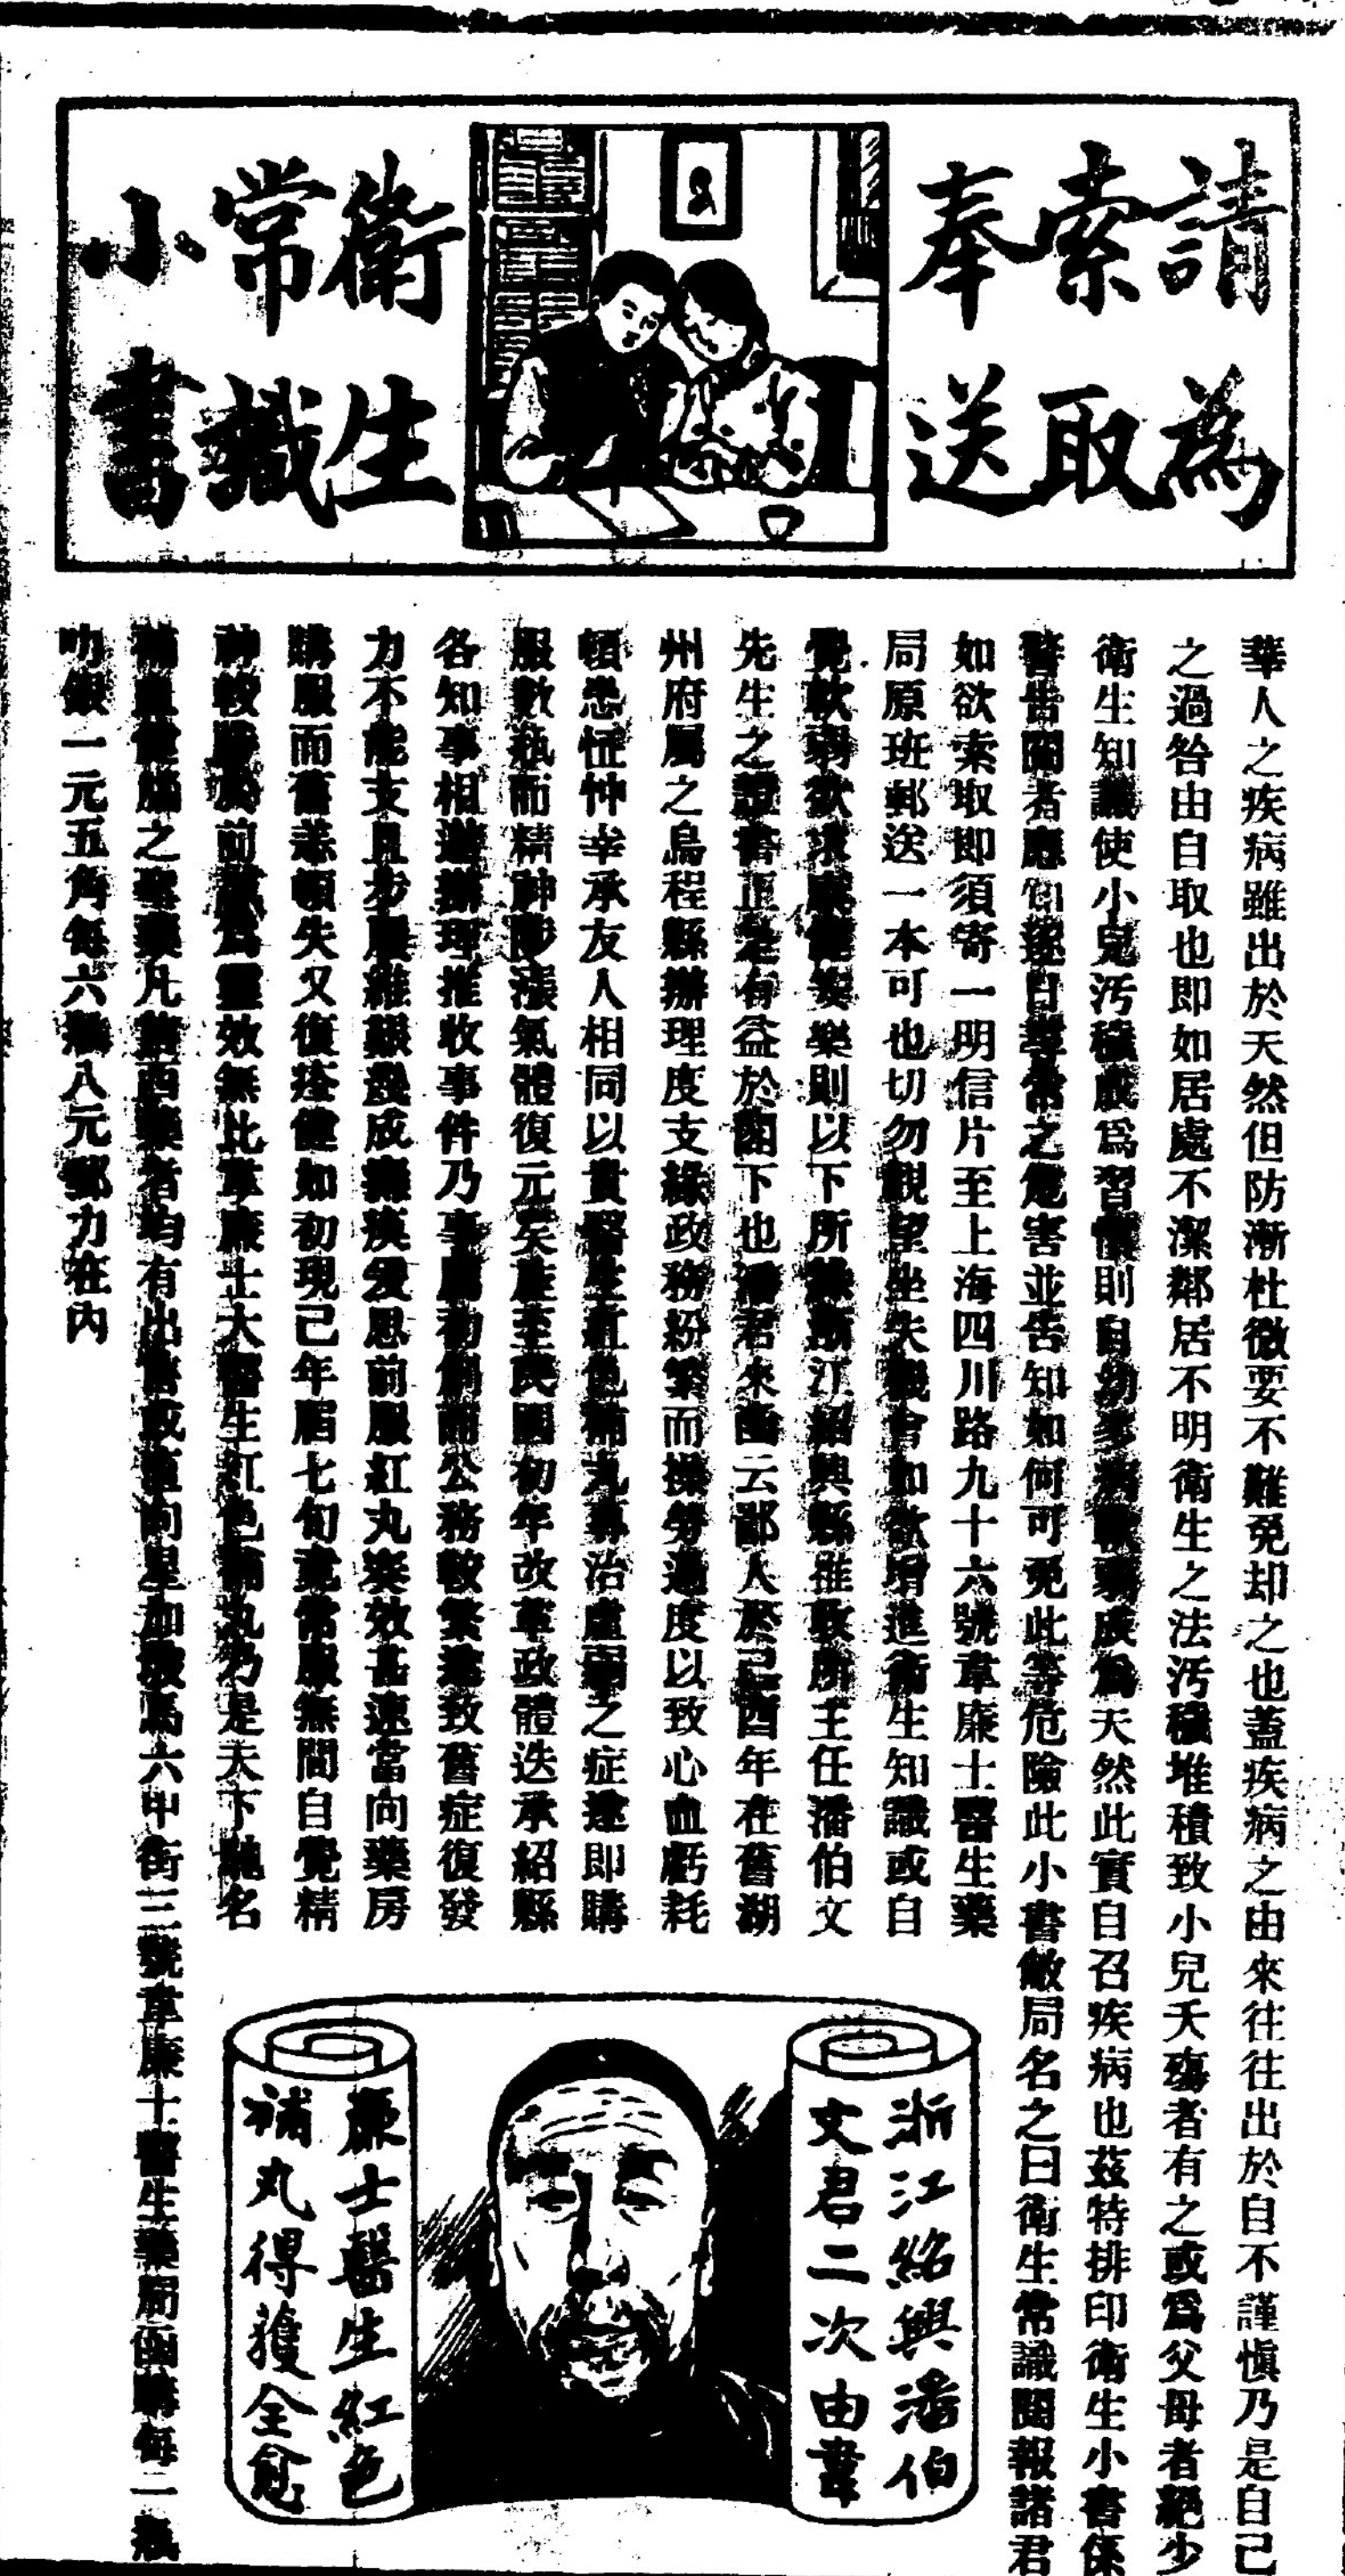 請為
索取
奉送
衛生
常識
小書
華人之疾病雖出於天然但防漸杜微要不難免却之也蓋疾病之由來往往出於自不謹愼乃是自己
之過咎由自取也即如居處不潔鄰居不明衛生之法汚穢堆積致小兒夭殤者有之或爲父母者絕少
衛生知識使小兒汚穢成爲習慣則自幼多病軟弱成爲天然此實自召疾病也茲特排印衛生小書係
警告閱者應知逐日尋常之危害並告知如何可免此等危險此小書敝局名之曰衛生常識閱報諸君
如欲索取即須寄一明信片至上海四川路九十六號韋廉士醫生藥
局原班郵送一本可也切勿觀望坐失機會如欲增進衛生知識或自
覺軟弱欲求康健安樂則以下所錄浙江紹興縣推收所主任潘伯文
先生之證書正是有益於閣下也潘君來函云鄙人於己酉年在舊湖
州府屬之烏程縣辦理度支緣政務紛繁而操勞過度以致心血虧耗
頓患怔忡幸承友人相同以貴醫生紅色補丸專治虛弱之症遂即購
服數瓶而精神陟漲氣體復元矣延至民國初年改革政體迭承紹縣
各知事相邀辦理推收事件乃事屬初創而公務較繁遂致舊症復發
力不能支且步履維艱幾成癱瘓爰思前服紅丸奏效甚速當向藥房
購服而舊恙頓失又復痊健如初現己年屆七旬竟常服無間自覺精
神較勝於前誠爲靈效無比韋廉士大醫生紅色補丸乃是天下馳名
補血健腦之聖藥凡經售西藥者均有出售或直向星加坡馬六甲街三號韋廉士醫生藥局函購每一瓶
叻銀一元五角每六瓶八元郵力在內
浙江紹興潘伯
文君二次由韋
廉士醫生紅色
補丸得獲全愈